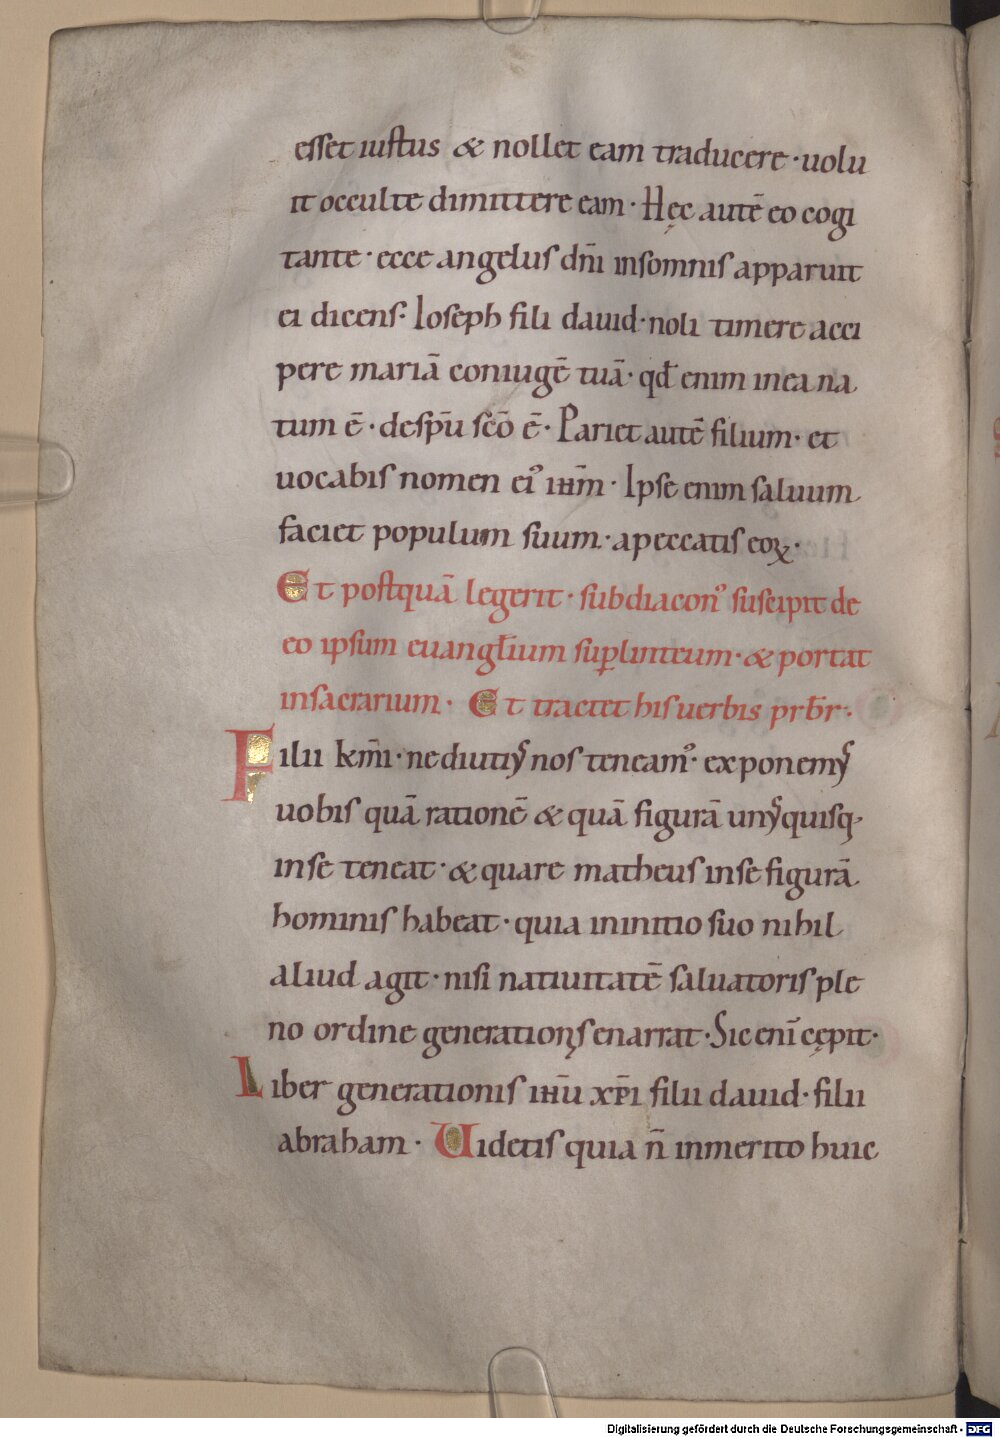 esset iustus & nollet eam traducere · uolu
it occulte dimittere eam · Hęc autē eo cogi
tante · ecce angelus dn̄i insomnis apparuit
ei dicens · Ioseph fili dauid · noli timere acci
pere mariā coniugē tuā · qđ enim inea na
tum ē · despū scō ē · Pariet autē filium · et
uocabis nomen eiꝰ ihm̄ · Ipse enim saluum
faciet populum suum · apeccatis eoꝝ ·
Et postquā legerit · subdiaconꝰ suscipit de
eo ipsum euangl̄ium suꝑlinteum · & portat
insacrarium · Et tractet hisuerbis prb̄r ·
Filii km̄i · nediutiꝰ nos teneamꝰ · exponemꝰ
uobis quā rationē & quā figurā unꝰquisq;
inse teneat · & quare matheus inse figurā
hominis habeat · quia ininitio suo nihil
aliud agit · nisi natiuitatē saluatoris ple
no ordine generationis enarrat · Sic enī cępit ·
Liber generationis ihū xp̄i filii dauid · filii
abraham · Uidetis quia n̄ inmerito huic
Digitalisierung gefördert durch die Deutsche Forschungsgemeinschaft - DFG